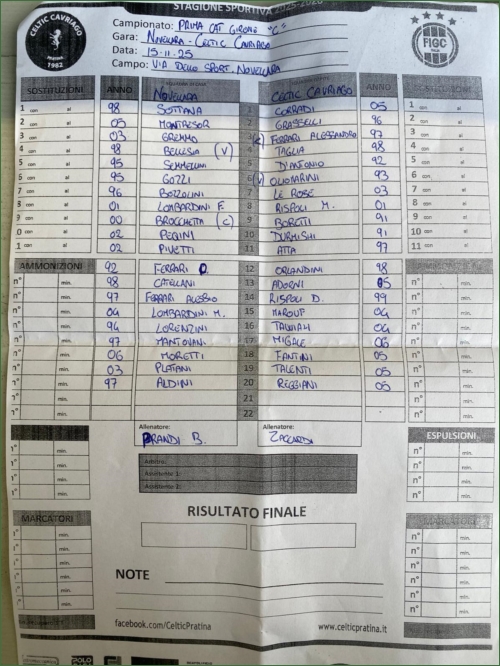 STAGIONE SPORTIVA 2025-2026
CELTIC CAVRIAGO
PRATINA
1982
Campionato: PRIMA CAT GIRONE "C"
Gara: NOVELLARA - CELTIC CAVRIAGO
Data: 15-11-25
Campo: VIA DELLO SPORT, NOVELLARA
FIGC
SOSTITUZIONI ANNO NOVELLARA CELTIC CAVRIAGO ANNO SOSTITUZIONI
1 con al 98 SOTTANA 1 CORRADI 05 1 con al
2 con al 05 MONTRESOR 2 GRASSELLI 96 2 con al
3 con al 03 GREMMO 3 (C) FERRARI ALESSANDRO 97 3 con al
4 con al 98 BELLESIA (V) 4 TAGLIA 98 4 con al
5 con al 95 SEMMELLINI 5 D'ANTONIO 92 5 con al
6 con al 95 GOZZI 6 (V) OLIOMARINI 93 6 con al
7 con al 96 BOZZOLINI 7 LE ROSE 03 7 con al
8 con al 01 LOMBARDINI F. 8 RISPOLI M. 01 8 con al
9 con al 00 BROCCHETTA (C) 9 BORETTI 91 9 con al
0 con al 02 PEGINI 10 DURMISHI 91 10 con al
1 con al 02 PIVETTI 11 ATTA 97 11 con al
AMMONIZIONI 92 FERRARI D. 12 ORLANDINI 98 AMMONIZIONI
n° min. 98 CATELLANI 13 ADORNI 05 n° min.
n° min. 97 FERRARI ALESSIO 14 RISPOLI D. 99 n° min.
n° min. 04 LOMBARDINI M. 15 MAROUF 04 n° min.
n° min. 94 LORENZINI 16 TAWIAH 04 n° min.
n° min. 97 MANTOVANI 17 MIGALE 06 n° min.
n° min. 06 MORETTI 18 FANTINI 05 n° min.
n° min. 03 PLATANI 19 TALENTI 05 n° min.
n° min. 97 ALDINI 20 REGGIANI 05 n° min.
n° min. 21 n° min.
n° min. 22 n° min.
Allenatore: BRANDI B. Allenatore: ZACCARDI
ESPULSIONI
min. n° min.
min. n° min.
min. n° min.
Arbitro:
Assistente 1:
Assistente 2:
RISULTATO FINALE
MARCATORI MARCATORI
n° min.
n° min.
n° min.
n° min.
n° min.
NOTE
facebook.com/CelticPratina www.celticpratina.it